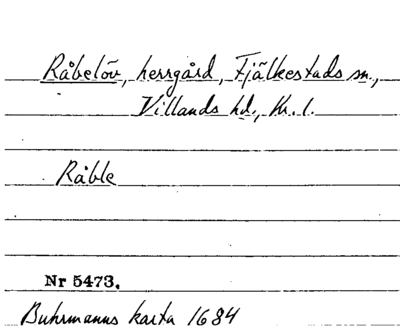 Råbelöv, herrgård, Fjälkestads sn.,
Villands hd., Kr. l.
Råble
Nr 5473.
Buhrmanns karta 1684